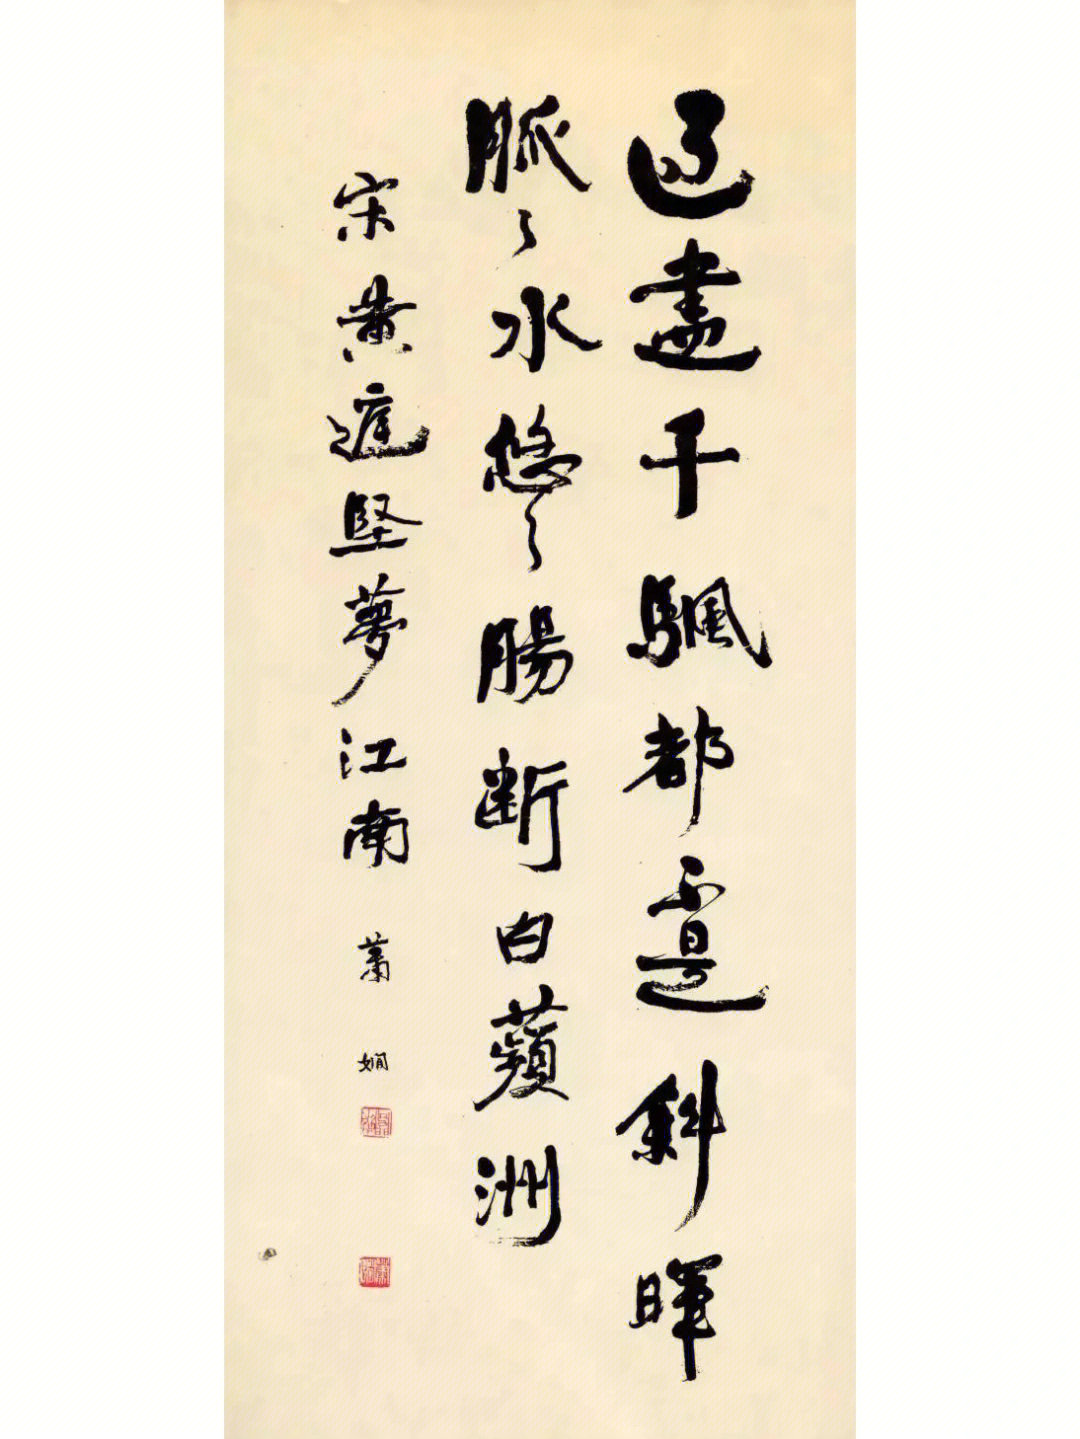 過盡千颿都不是斜暉
脈々水悠々腸斷白蘋洲
宋黃庭堅夢江南 蕭嫻